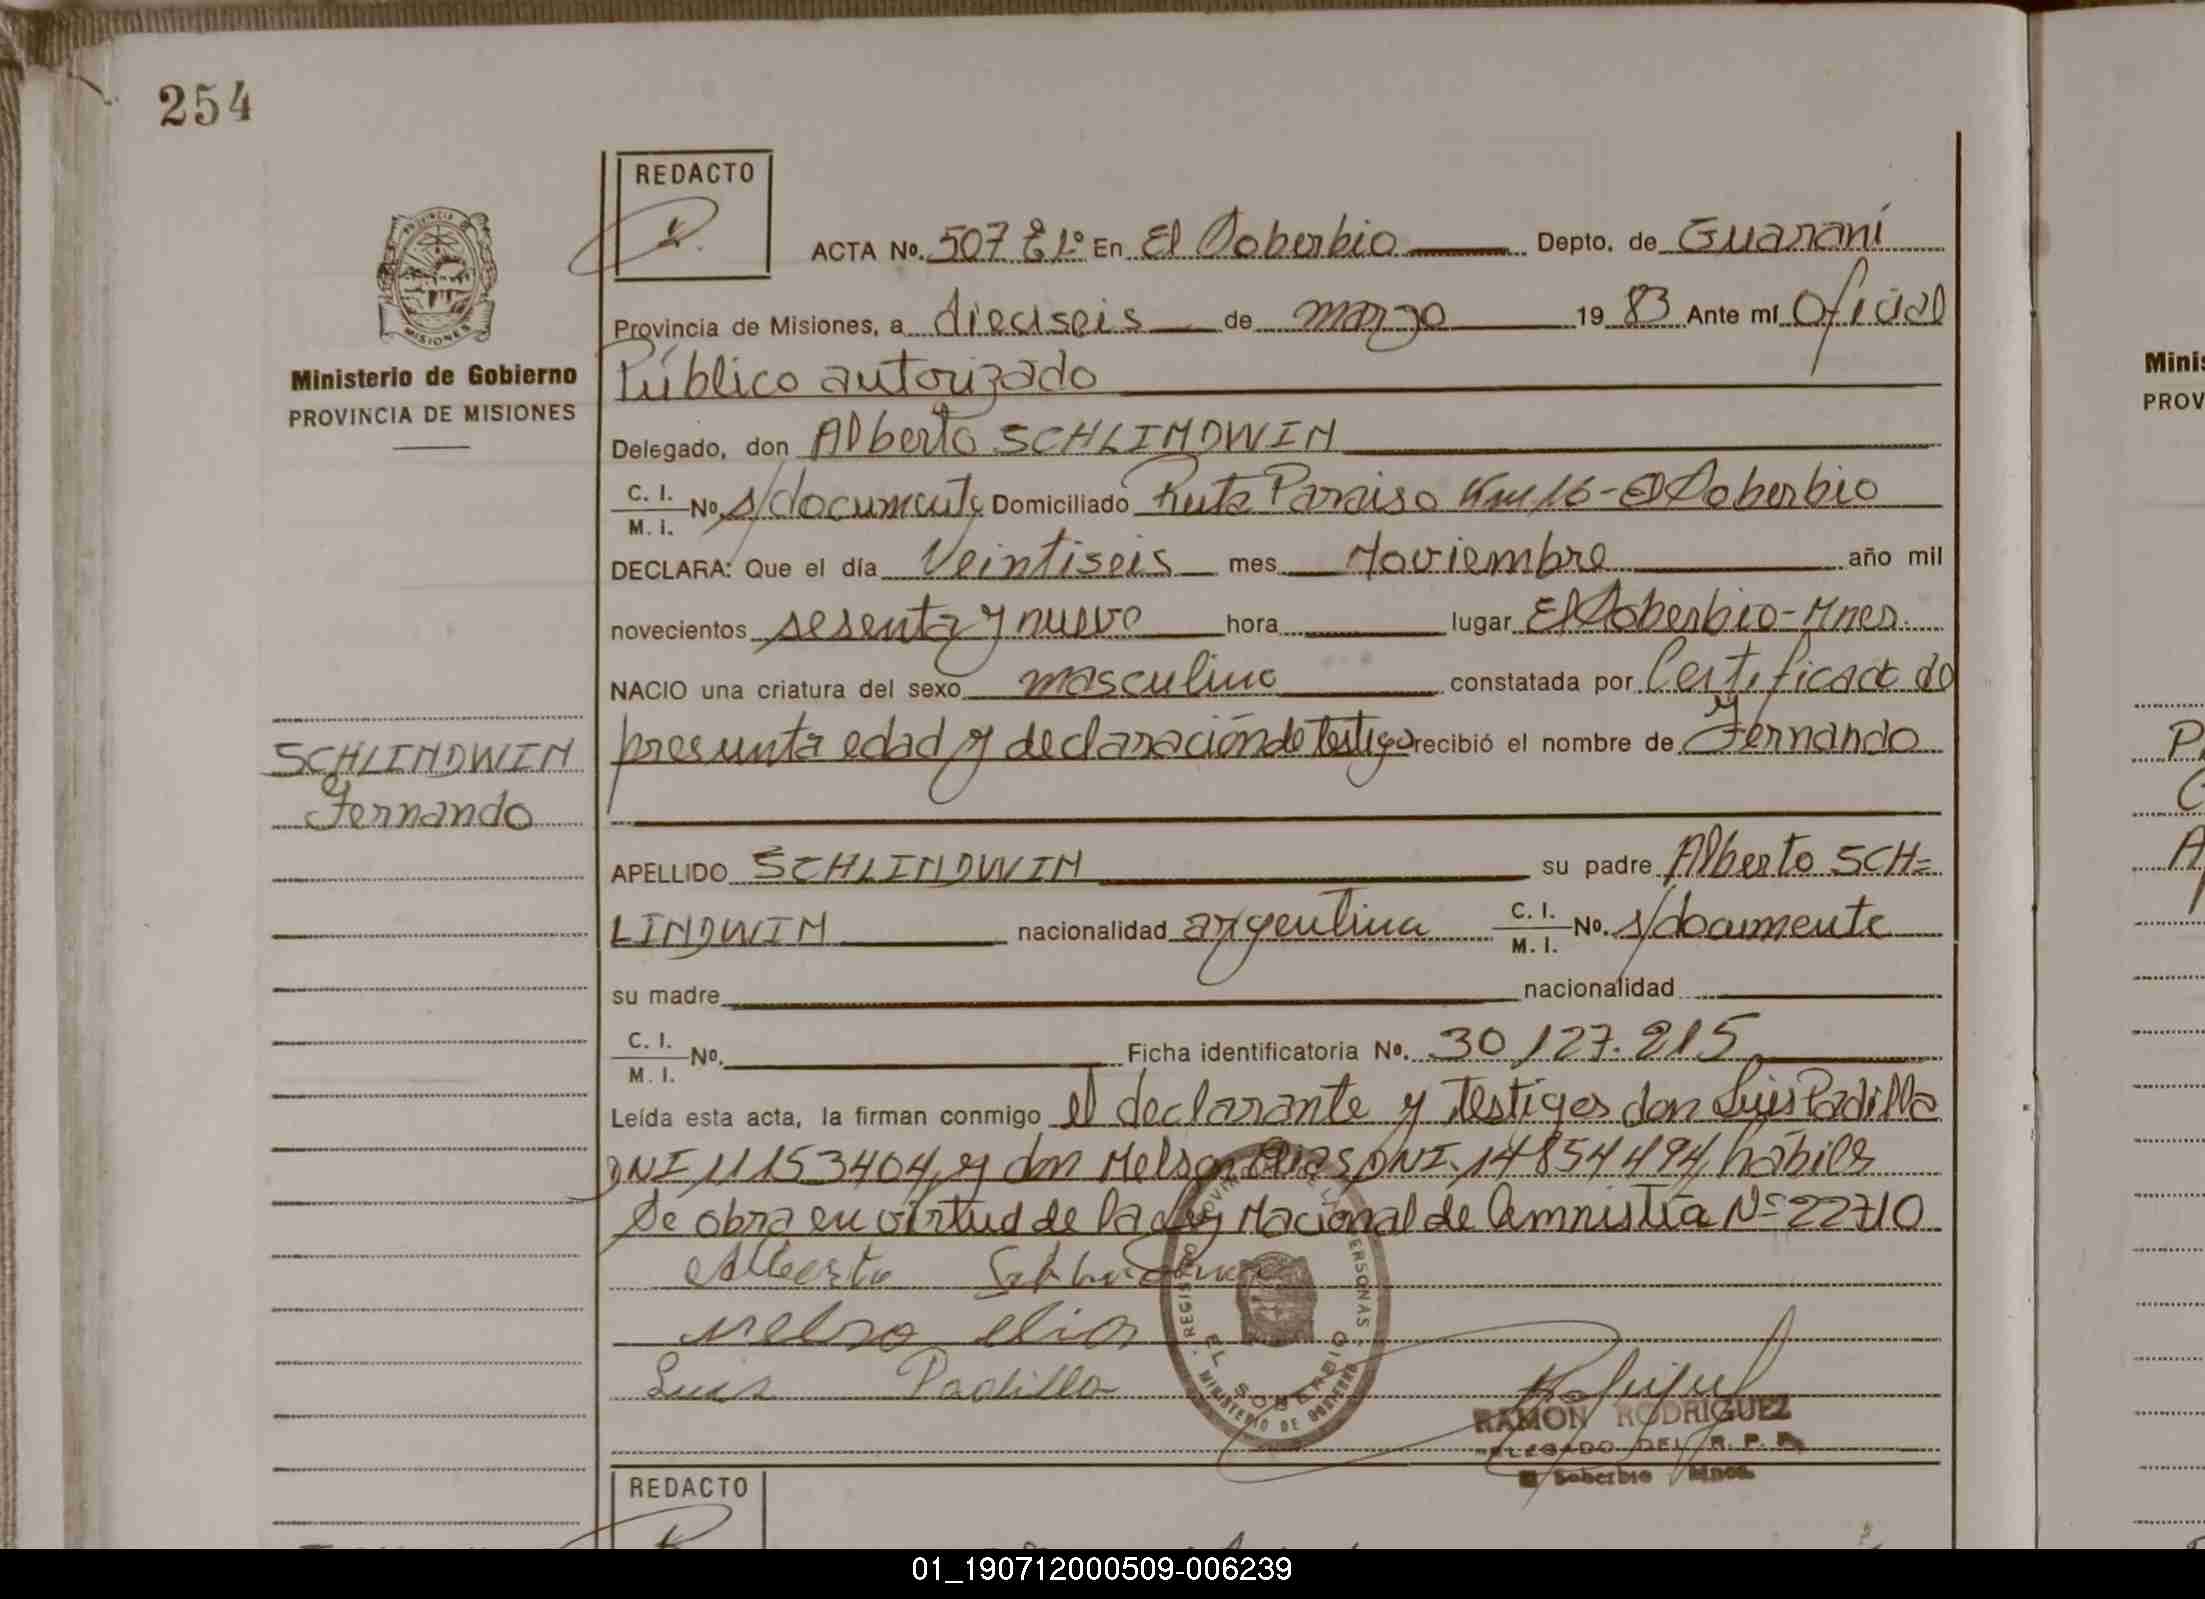 254
REDACTO
ACTA Nº. 507 Tº 1º En El Soberbio Depto. de Guaraní
Provincia de Misiones, a dieciseis de marzo 19 83 Ante mí Oficial
Ministerio de Gobierno
PROVINCIA DE MISIONES
Público autorizado
Delegado, don Alberto SCHLINDWIN
C. I.
M. I. Nº. s/documento Domiciliado Ruta Paraiso Km 16 - El Soberbio
DECLARA: Que el día Veintiseis mes Noviembre año mil
novecientos sesenta y nueve hora lugar El Soberbio - Mnes.
NACIO una criatura del sexo masculino constatada por Certificado de
presunta edad y declaración de testigo recibió el nombre de Fernando
SCHLINDWIN
Fernando
APELLIDO SCHLINDWIN su padre Alberto SCH=
LINDWIN nacionalidad argentina C. I.
M. I. Nº. s/documento
su madre nacionalidad
C. I.
M. I. Nº. Ficha identificatoria Nº. 30 127.215
Leída esta acta, la firman conmigo el declarante y testigos don Luis Padilla
DNI 11153404, y don Nelson Elias DNI. 14854494, hábiles
Se obra en virtud de la Ley Nacional de Amnistía Nº 22710
Alberto
Nelso Elias
Luis Padilla
EL SOBERBIO
MINISTERIO DE GOBIERNO
RAMON RODRIGUEZ
DELEGADO DEL R. P. P.
El Soberbio Mnes.
REDACTO
Minis
PROV
01_190712000509-006239